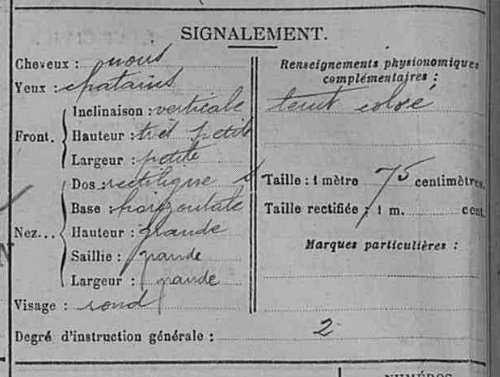 SIGNALEMENT.
Cheveux : noirs
Yeux : chatains
Front. Inclinaison : verticale
Hauteur : très petite
Largeur : petite
Nez... Dos : rectiligne
Base : horizontale
Hauteur : grande
Saillie : grande
Largeur : grande
Visage : rond
Renseignements physionomiques
complémentaires :
teint coloré
Taille : 1 mètre 75 centimètres.
Taille rectifiée : 1 m. cent.
Marques particulières :
Degré d'instruction générale : 2